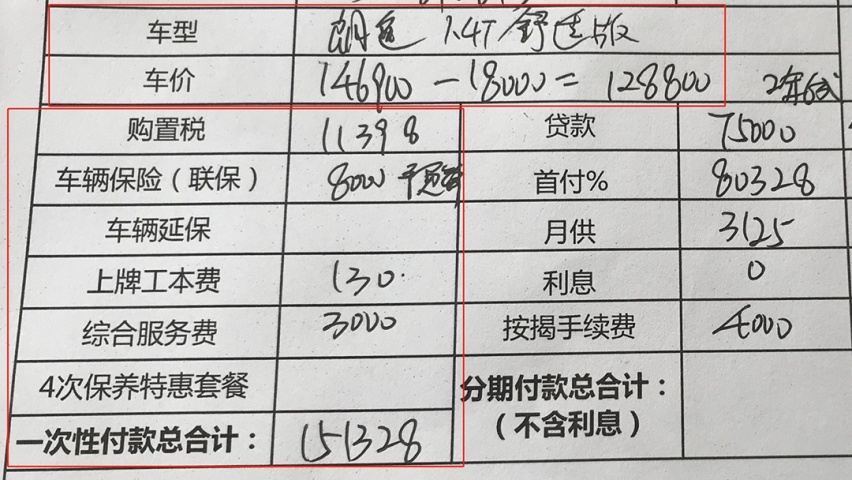 车型 朗逸 1.4T 舒适版
车价 146900 - 18000 = 128800
购置税 11398 贷款 75000
车辆保险（联保） 8000 首付% 80328
车辆延保 月供 3125
上牌工本费 130 利息 0
综合服务费 3000 按揭手续费 4000
4次保养特惠套餐 分期付款总合计：
一次性付款总合计： 151328 （不含利息）